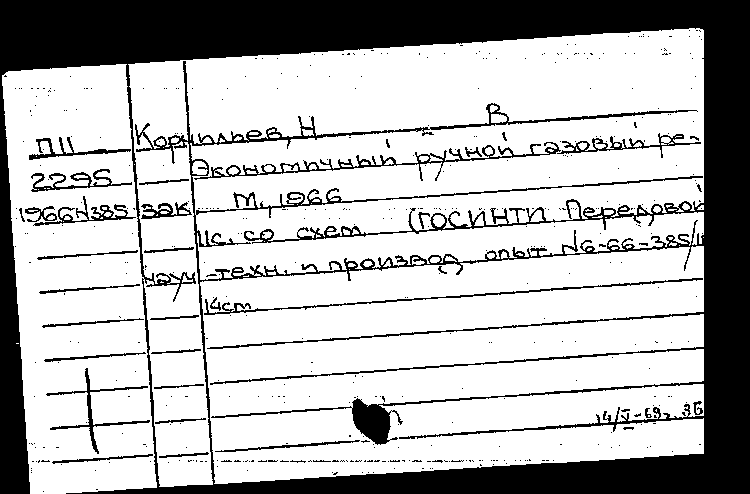 П11 Корнильев, Н В
2295 Экономичный ручной газовый ре-
1966 N385 зак. М., 1966
11с. со схем. (ГОСИНТИ. Передовой
науч.-техн. и производ. опыт. N6-66-385/
14см
14/V-69г. ЗБ